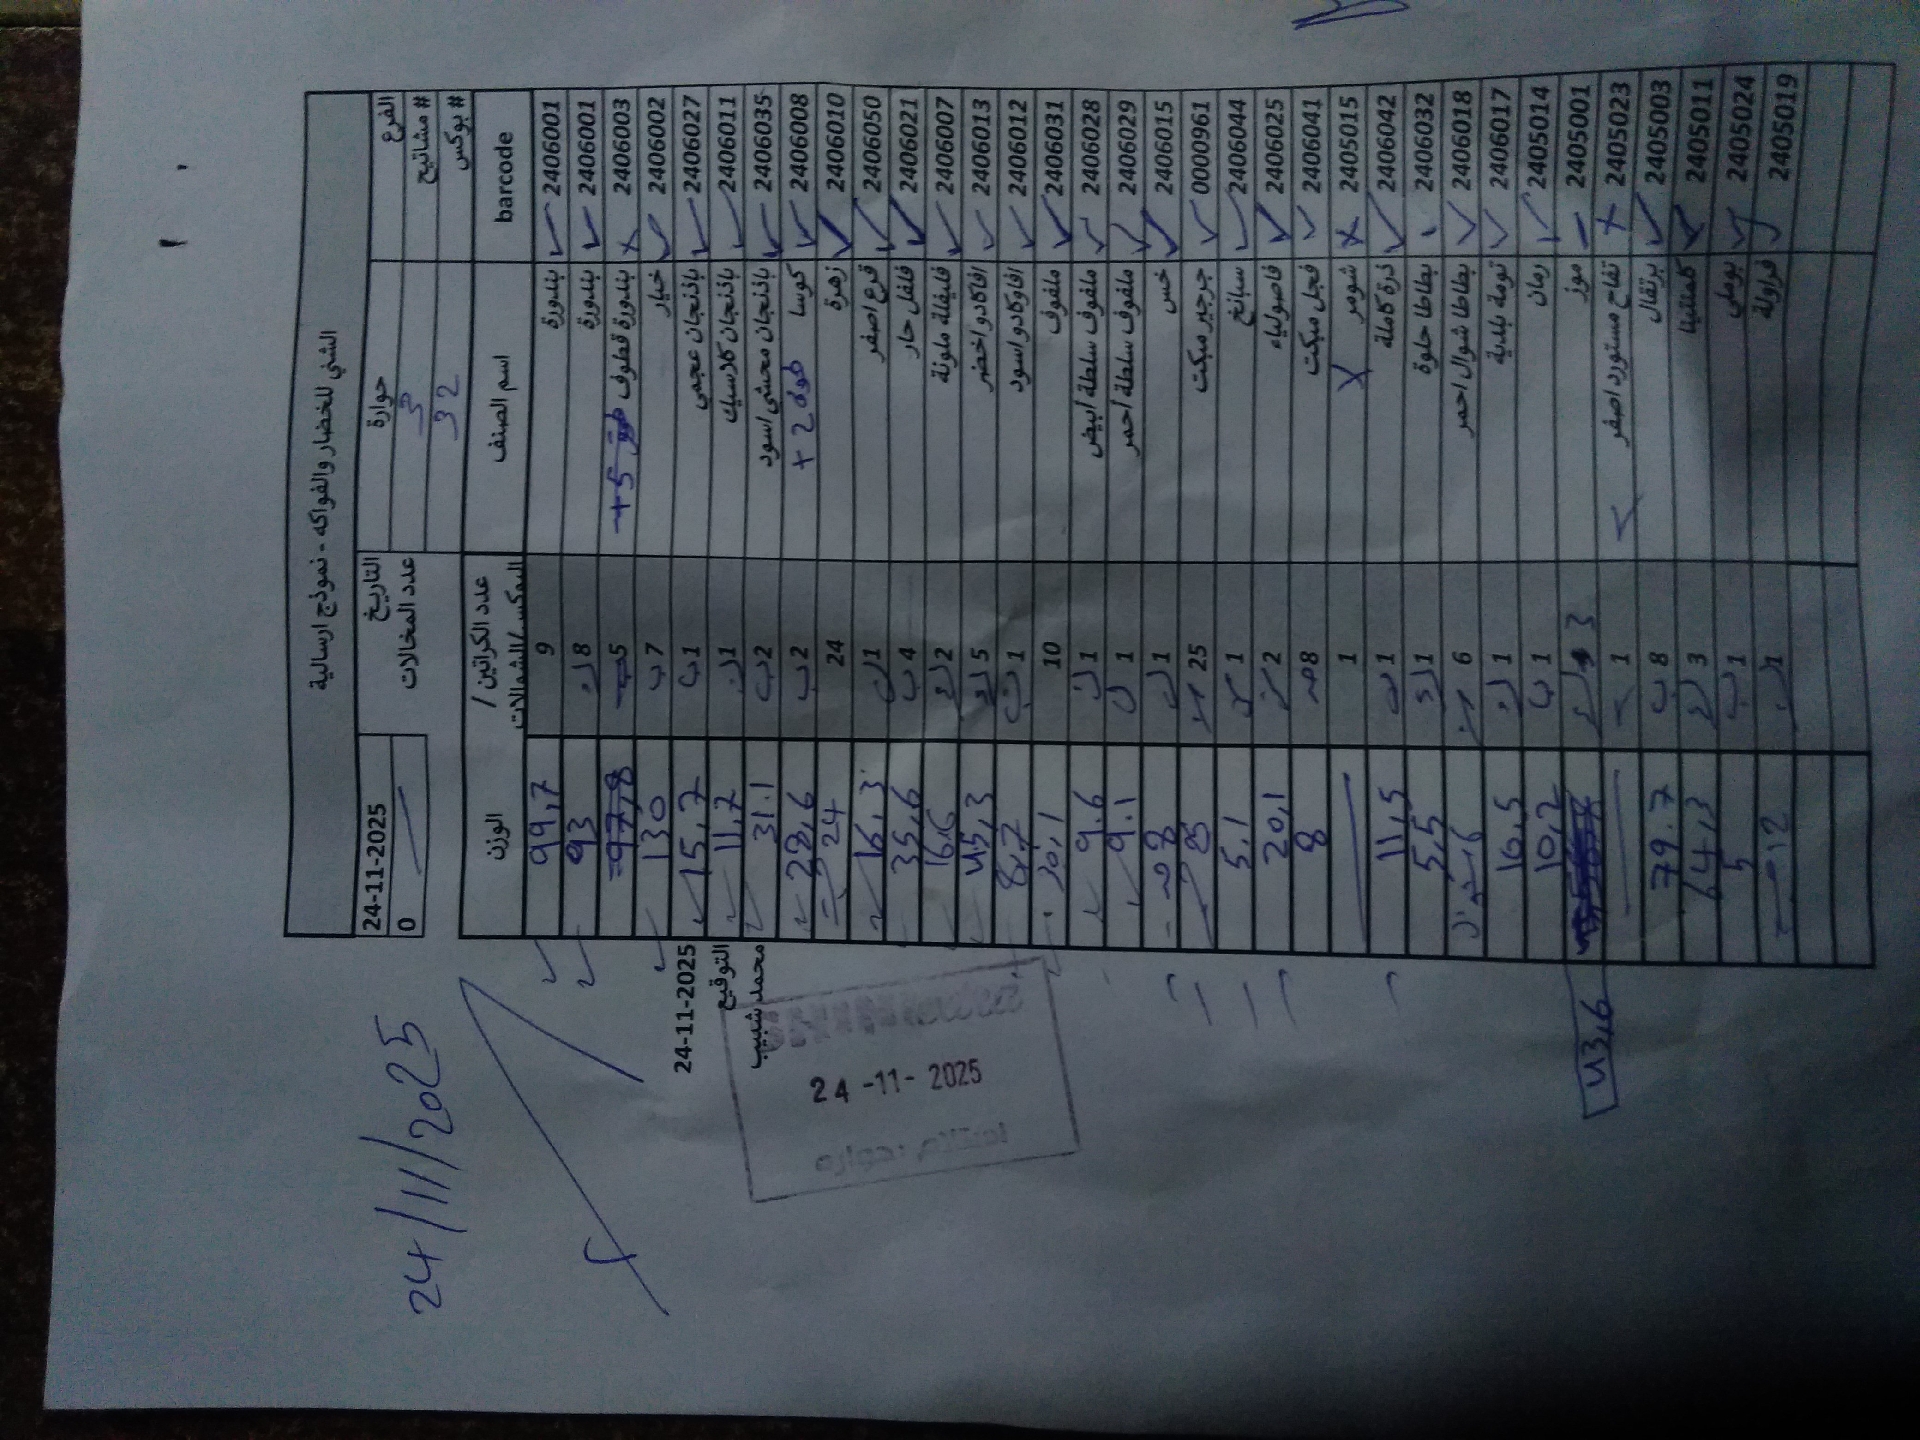 الشني للخضار والفواكه - نموذج ارسالية
الفرع حوارة التاريخ 24-11-2025
# مشاتيح 3 عدد المخالات 0
# بوكس 32
barcode اسم الصنف عدد الكراتين / البوكس/الشوالات الوزن
2406001 بندورة 9 99,7
2406001 بندورة 8 93
2406003 بندورة قطوف +5 5 97,8
2406002 خيار 7 ب 130
2406027 باذنجان عجمي 1 ب 15,7
2406011 باذنجان كلاسيك 1 11,7
2406035 باذنجان محشي اسود 2 ب 31.1
2406008 كوسا + 2 2 ب 28,6
2406010 زهرة 24 24
2406050 قرع اصفر 1 16,3
2406021 فلفل حار 4 ب 35,6
2406007 فليفلة ملونة 2 16,6
2406013 افاكادو اخضر 5 45,3
2406012 افاوكادو اسود 1 8,7
2406031 ملفوف 10 30,1
2406028 ملفوف سلطة ابيض 1 9.6
2406029 ملفوف سلطة احمر 1 9.1
2406015 خس 1 98
0000961 جرجير مبكت 25 25
2406044 سبانخ 1 5,1
2406025 فاصولياء 2 20,1
2406041 فجل مبكت 8 8
2405015 شومر X 1
2406042 ذرة كاملة 1 11,5
2406032 بطاطا حلوة 1 5,5
2406018 بطاطا شوال احمر 6 6
2406017 ثومة بلدية 1 16,5
2405014 رمان 1 ب 10,2
2405001 موز 3 43,6
2405023 تفاح مستورد اصفر 1
2405003 برتقال 8 ب 79.7
2405011 كلمنتينا 3 64,3
2405024 بوملي 1 ب 5
2405019 فراولة 1 12
24-11-2025
التوقيع
محمد شبيب
24-11-2025
24/11/2025